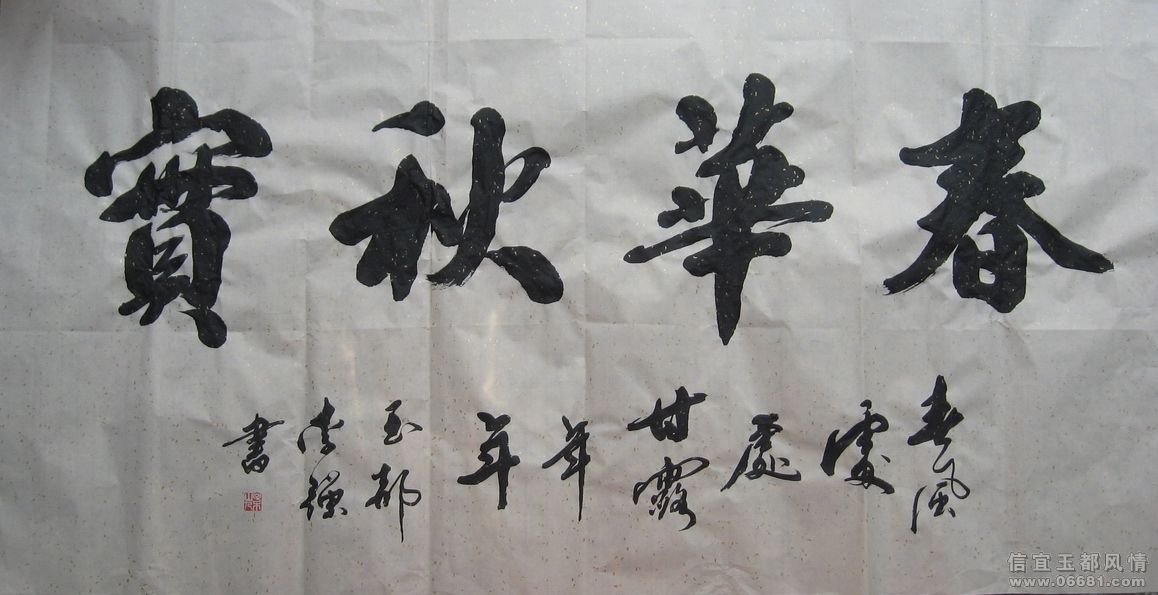 春華秋實
春風處處甘露年年
玉都
書
信宜玉都风情
www.06681.com